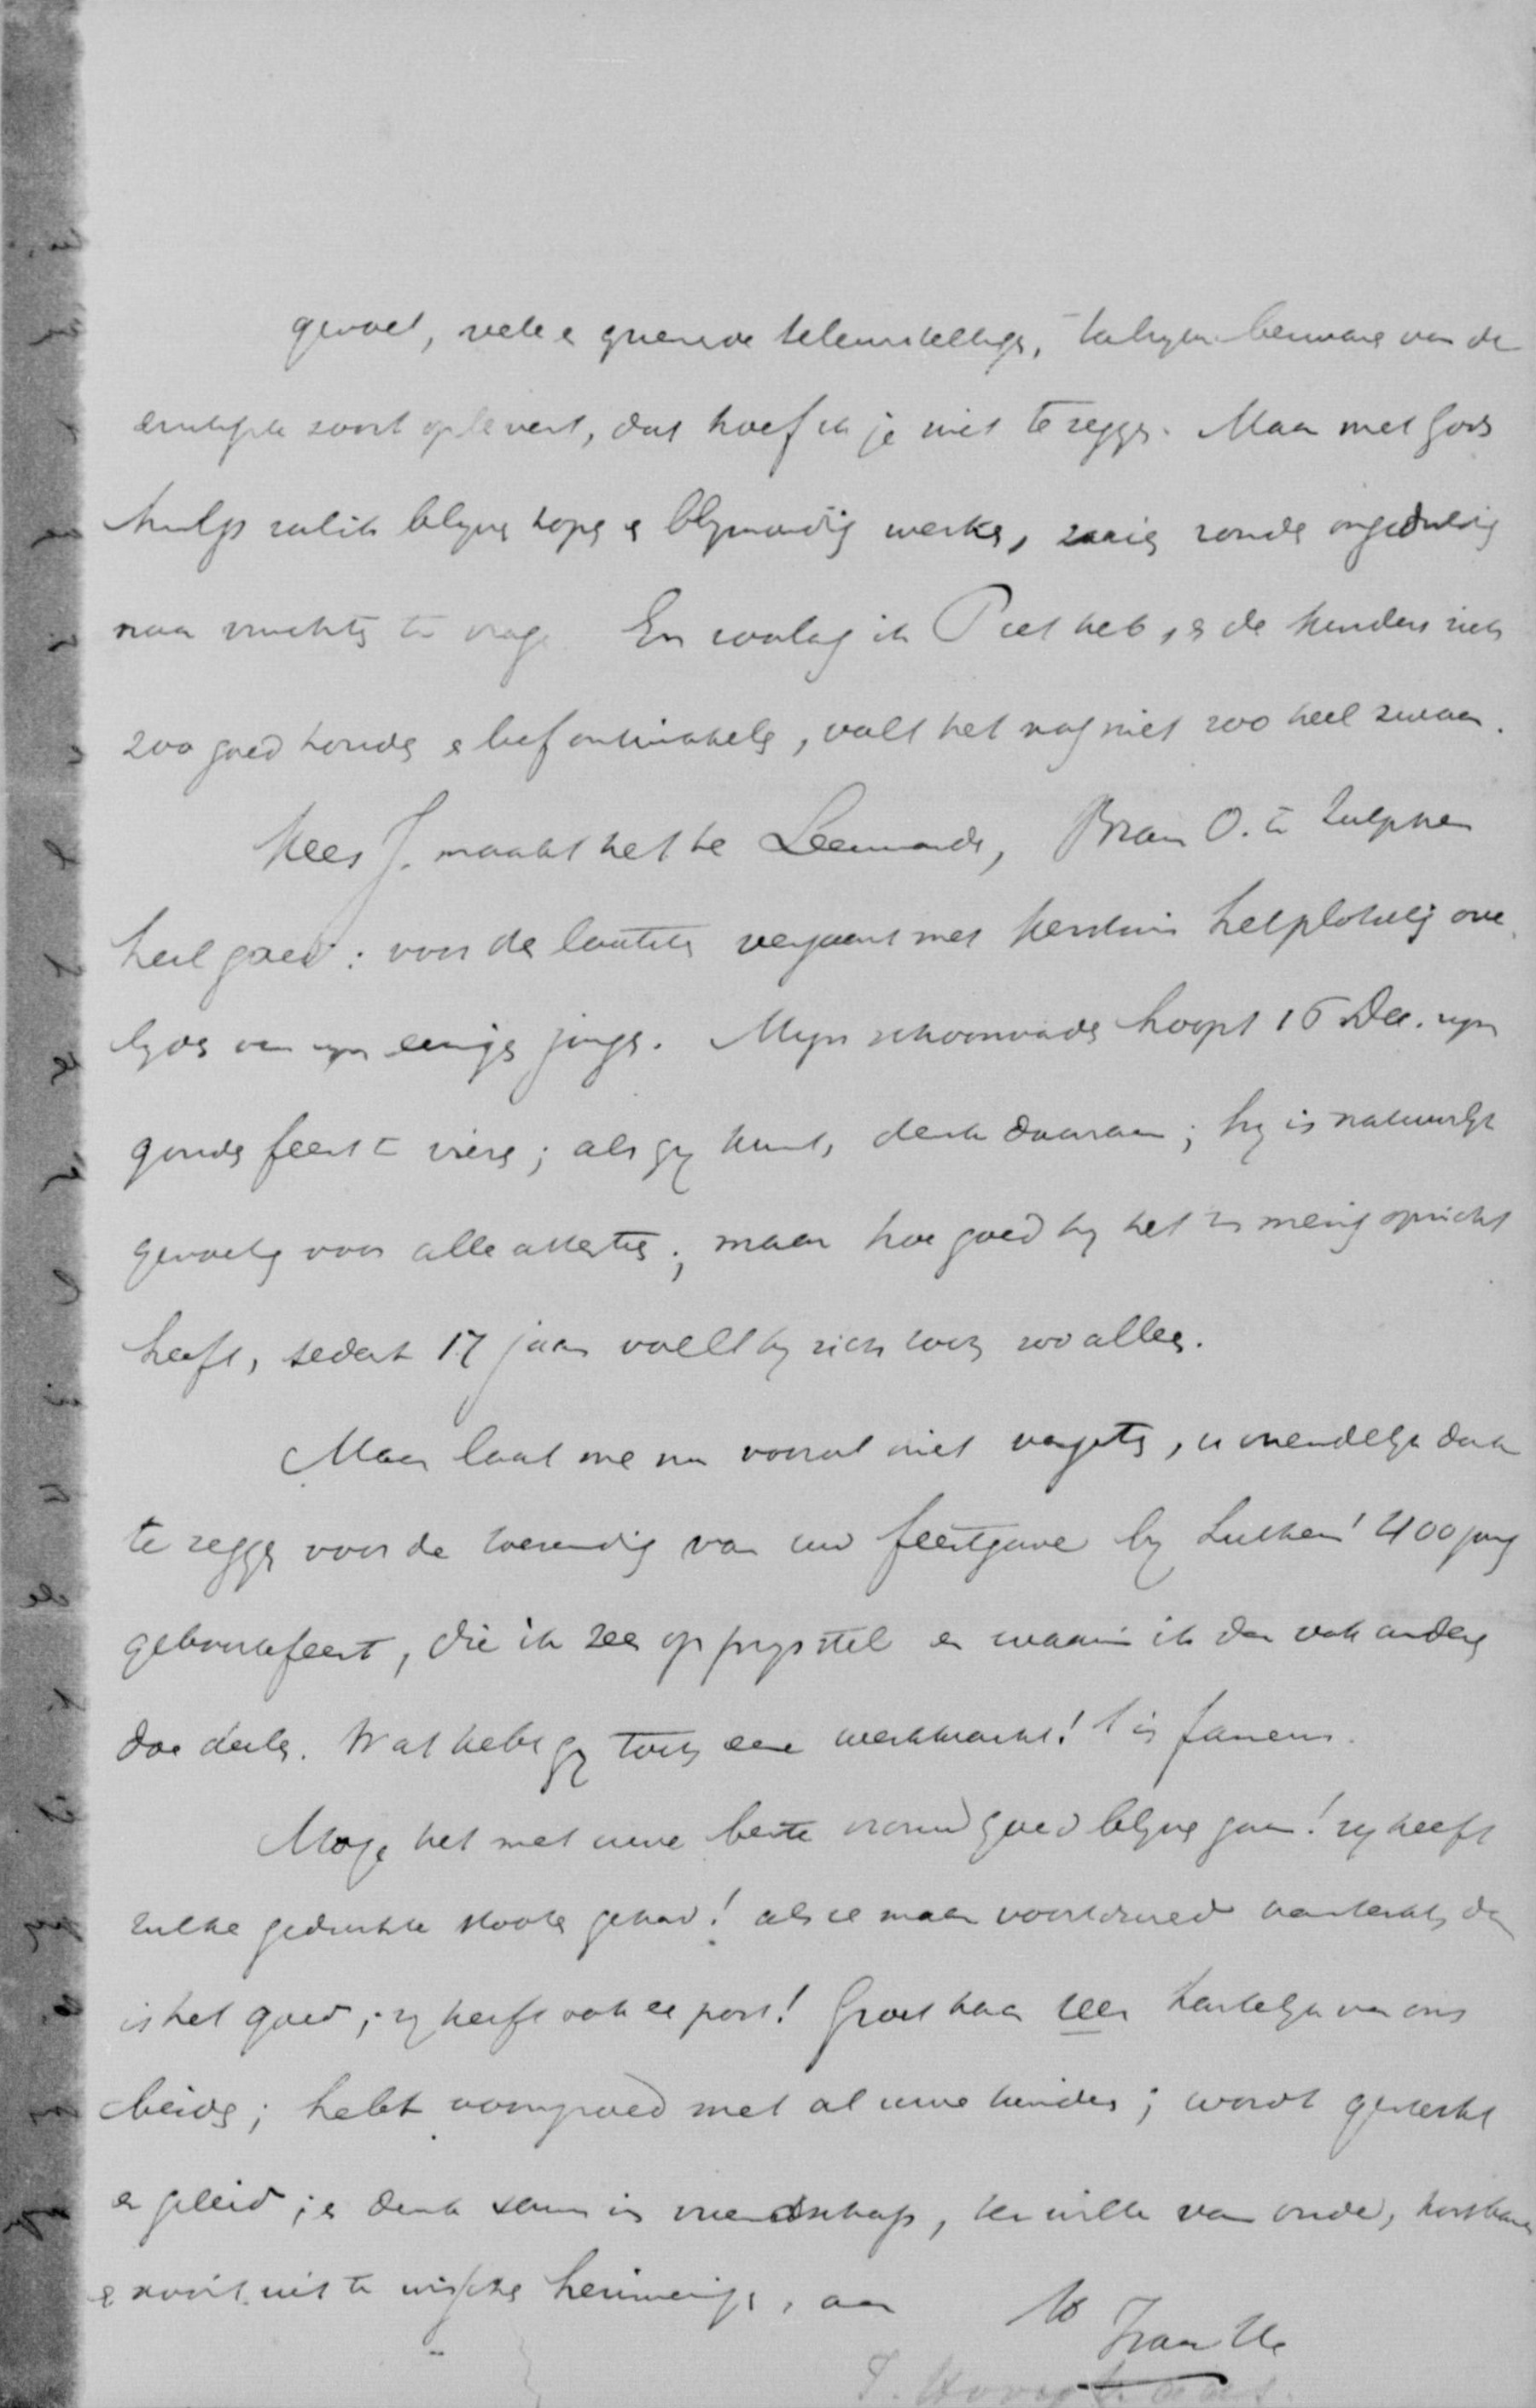 gevoel, vele e grievende teleurstellinge, talryke bezware van de
ernstigste soort oplevert, dat hoef ik je niet te zegge. Maar met Gods
hulp zal ik blyve hope e blymoedig werke, zaaie zonde ongeduldig
naar vruchte te vrage. En zoolag ik Piet heb, e de kindere zich
zoo goed houde e lief ontwikkele, valt het nog niet zoo heel zwaar.
Kees J. maakt het te Leeuwarde, Bram O. te Zutphen
heel goed: voor de laatste verjaart met Kerstmis het plotselig over
lyde va zyn eenige jonge. Myn schoonvade hoopt 16 Dec. zyn
goude feest te viere; als gy kunt, denk daaraan; hy is natuurlyk
gevoelig voor alle attentie; maar hoe goed hy het in menig opzicht
heeft, sedert 17 jaar voelt hy zich toch zoo allee.
Maar laat me nu vooral niet vergete, u vriendelyk dank
te zegge voor de toezendig van uw feestgave by Luthers 400 jarig
geboortefeest, die ik zeer op prys stel en waarin ik dan ook andere
doe deele. Wat hebt gy toch eene werkkracht! 't is fameus.
Moge het met uwe beste vrouw goed blyve gaan! zy heeft
zulke geduchte stoote gehad! als ze maar voortdurend aansterkt, dan
is het goed; zy heeft ook ee post! Groet haar zeer hartelyk van ons
beide; hebt voorspoed met al uwe kindere; wordt gesterkt
e geleid; e denk soms in vriendschap, ter wille van oude, kostbare
e nooit uit te wissche herinneringe, aan